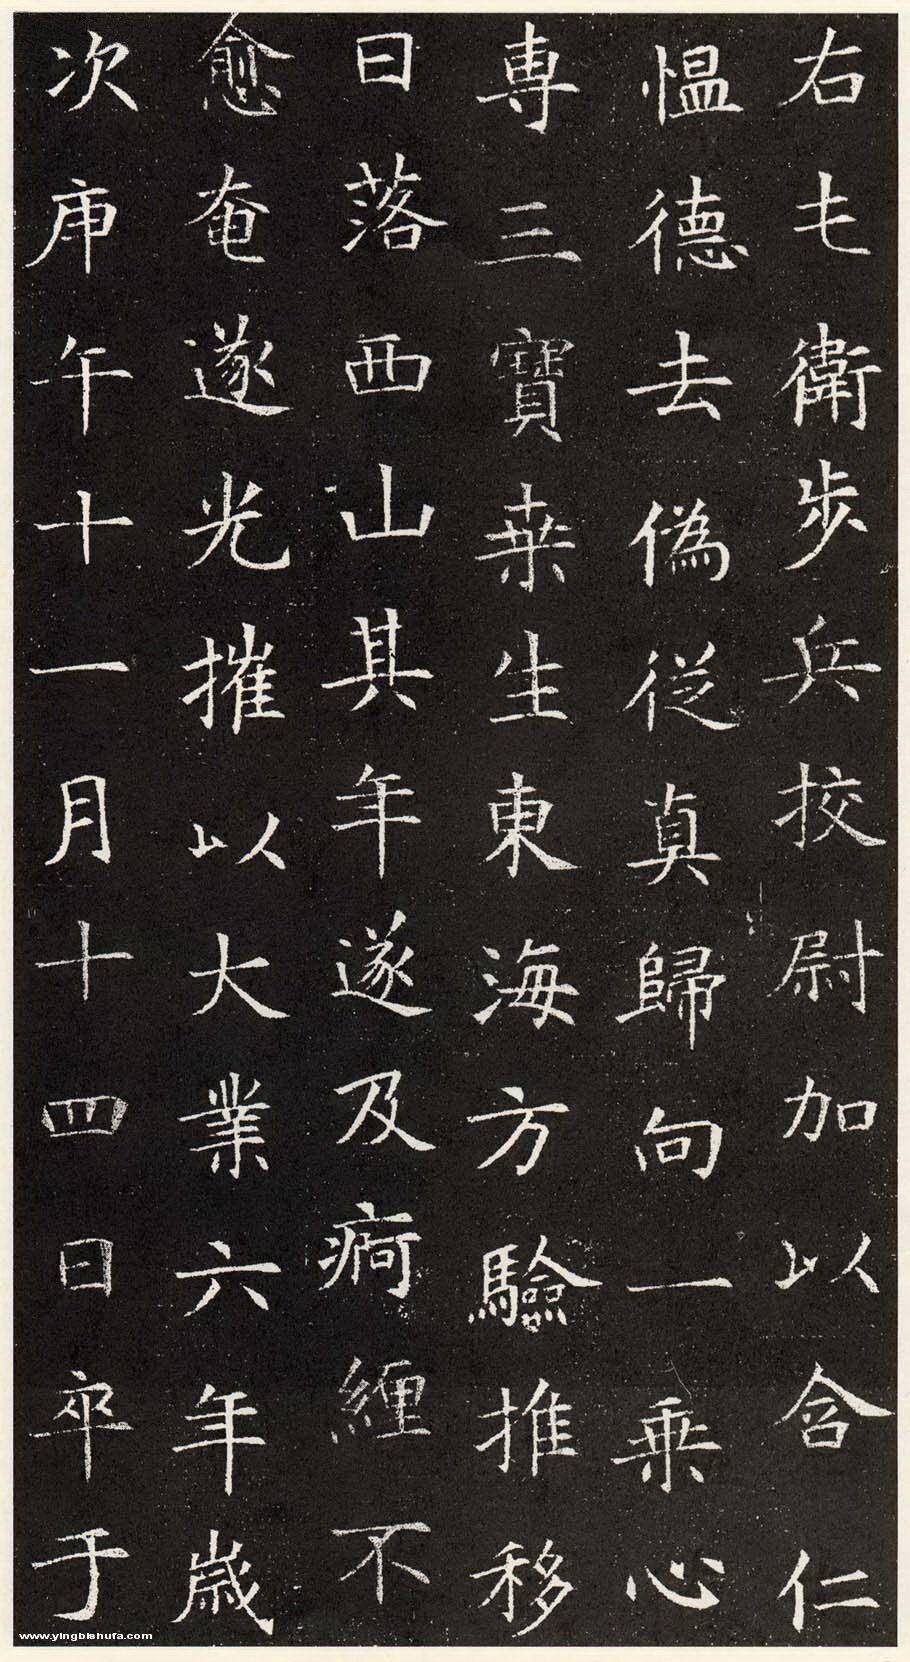 右七衛步兵挍尉加以含仁
愠德去偽從真歸向一乘心
專三寶桒生東海方驗推移
日落西山其年遂及痾纏不
愈奄遂光摧以大業六年歲
次庚午十一月十四日卒于
www.yingbishufa.com